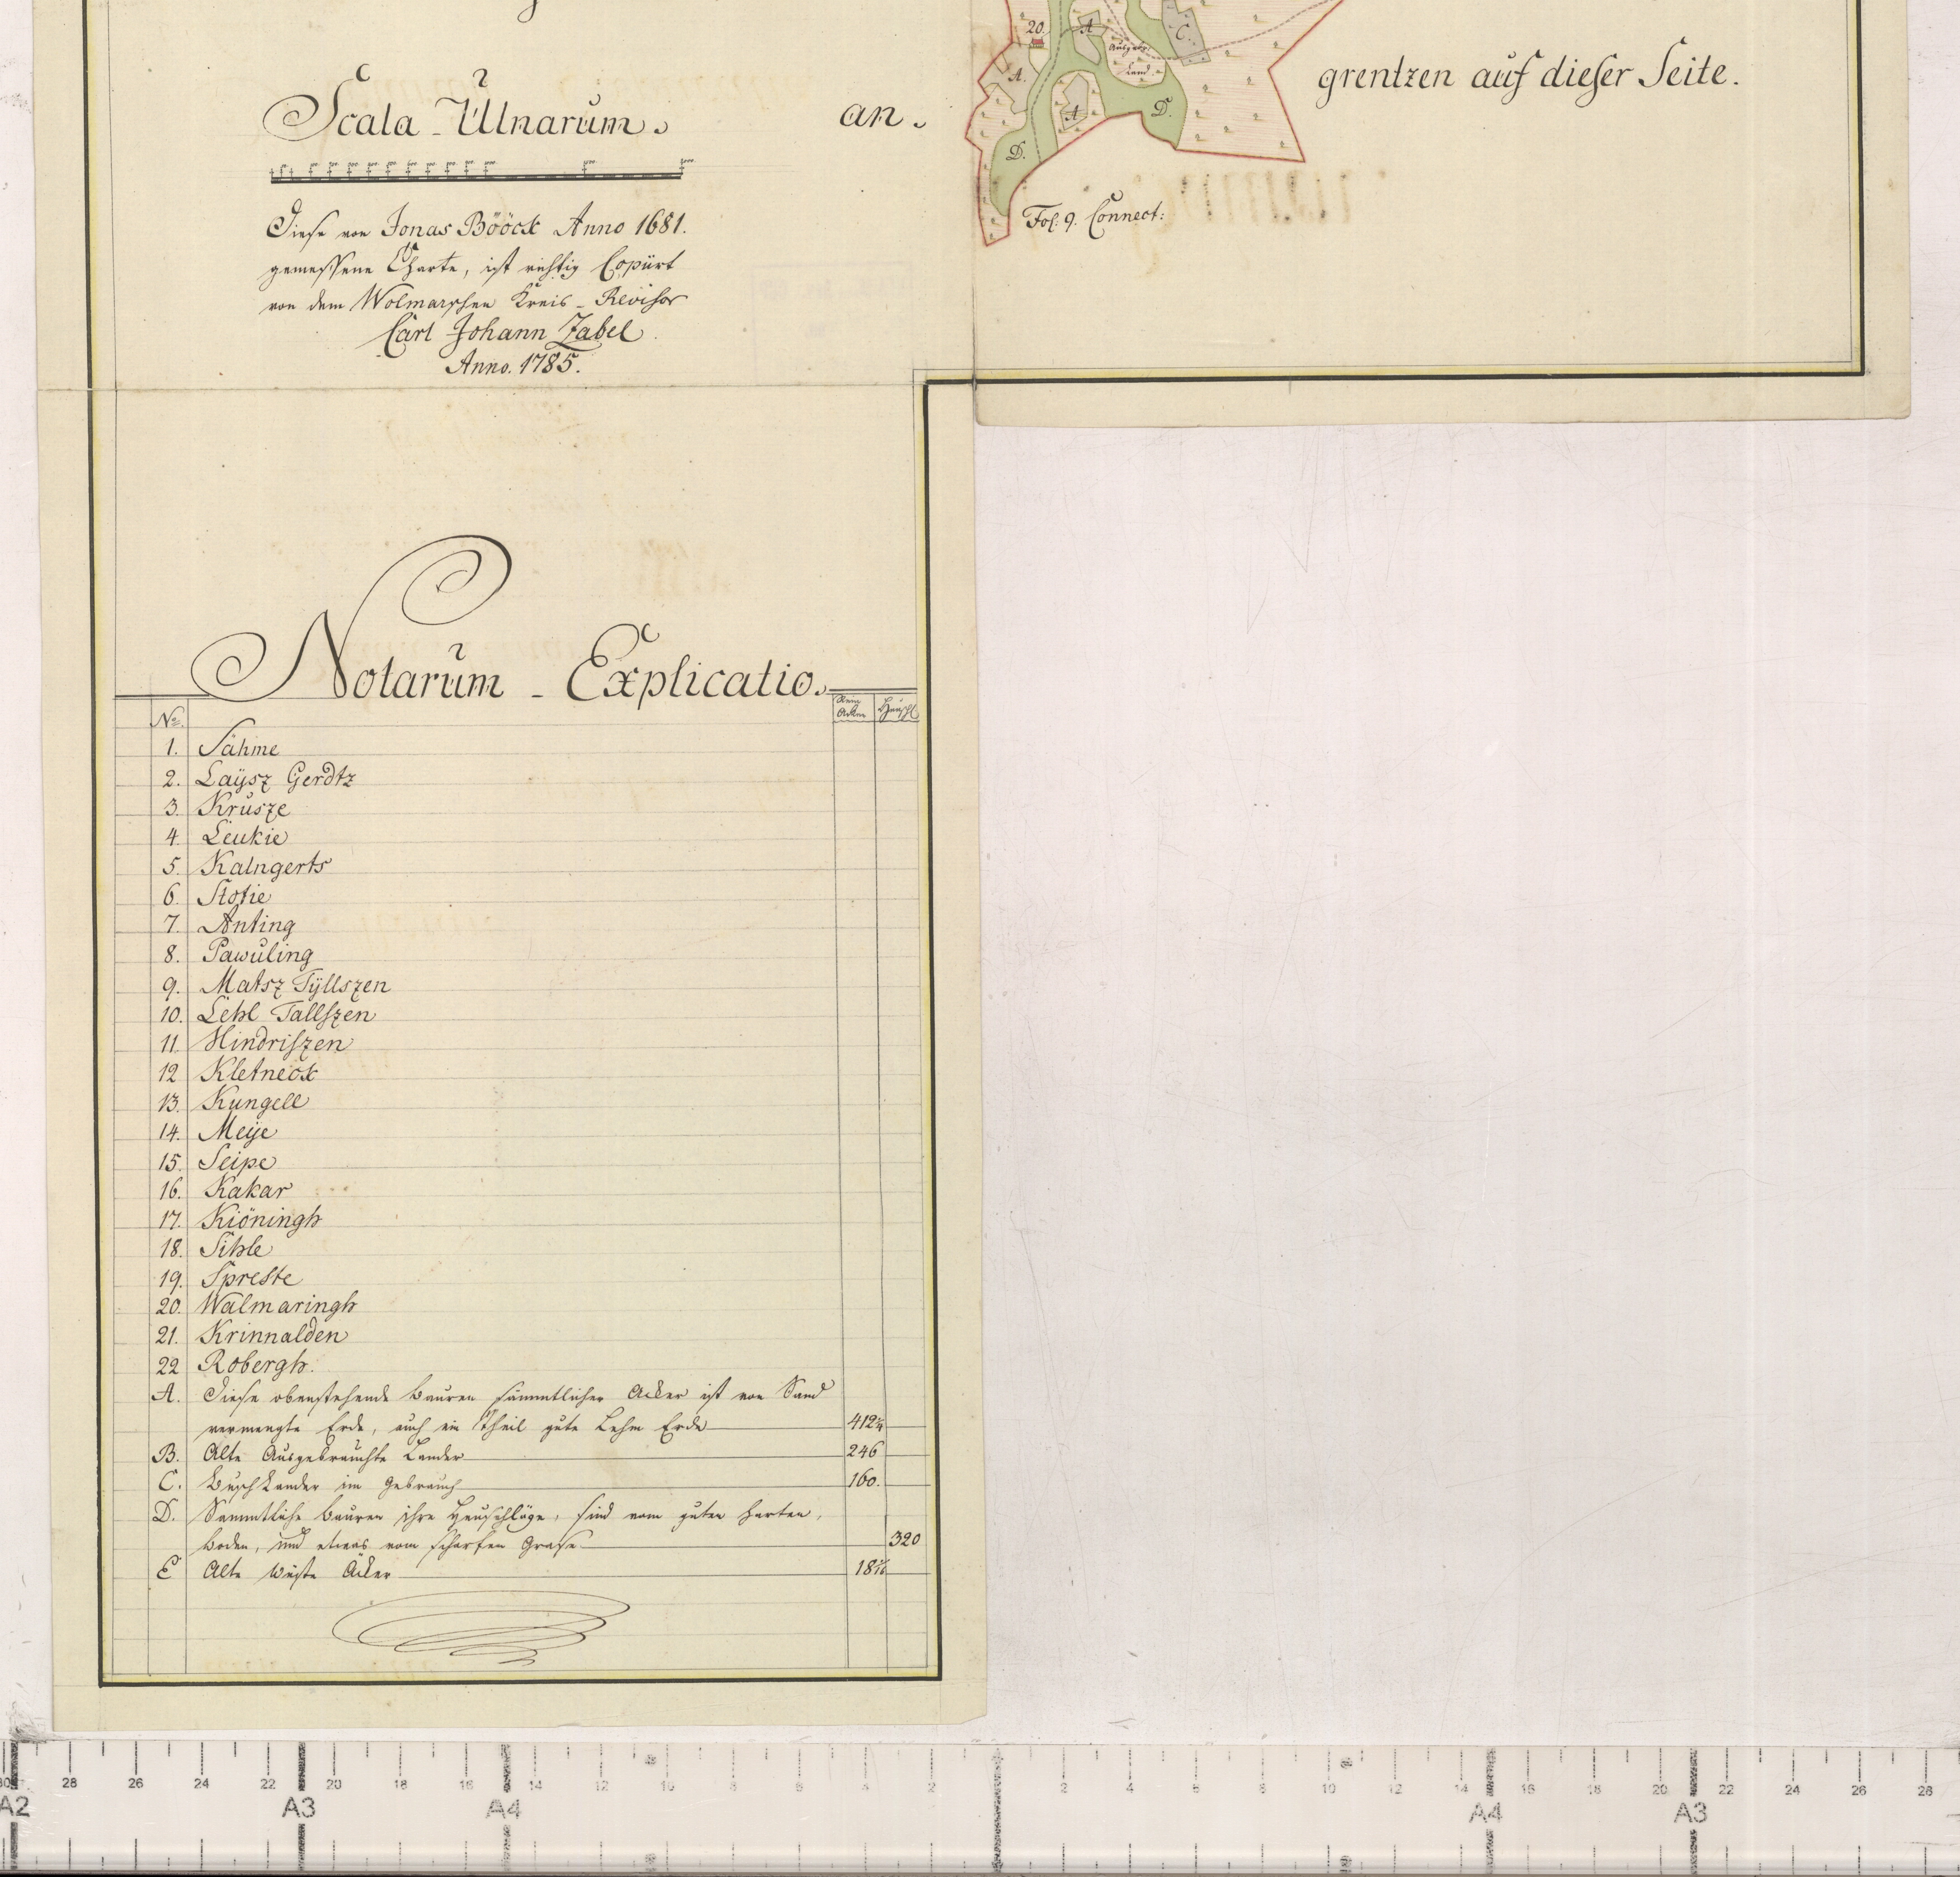 Scala Ulnarum.
an.
grentzen auf dieser Seite.
20.
A
C.
Ausgebr.
Land
A.
A
D.
D.
Fol: 9. Connect:
Diese von Jonas Bööck Anno 1681.
gemessene Charte, ist richtig Copiirt
von dem Wolmarschen Kreis-Revisor
Carl Johann Zabel
Anno. 1785.
Notarum - Explicatio.
No. Acker Heuschl
1. Sahme
2. Laÿsz Gerdtz
3. Krusze
4. Leukie
5. Kalngerts
6. Stotie
7. Anting
8. Pawuling
9. Matsz Tÿllszen
10. Lehl Tallszen
11. Hindriszen
12 Kletneck
13. Kungell
14. Meije
15. Seipe
16. Kakar
17. Kiöningh
18. Sihle
19. Spreste
20. Walmaringh
21. Krinnalden
22 Robergh.
A. Diese obenstehende Bauren sämmtlicher Acker ist von Sand
vermengte Erde, auch ein Theil gute Lehm Erde 412¼
B. Alte Ausgebrauchte Länder 246
C. Busch Länder im Gebrauch 160.
D. Sammtliche Bauren ihre Heuschläge, sind vom guten harten,
boden, und etwas vom scharfen Grase 320
E Alte wüste Äcker
28 26 24 22 20 18 16 14 12 10 8 6 4 2 2 4 6 8 10 12 14 16 18 20 22 24 26 28
A2 A3 A4 A4 A3